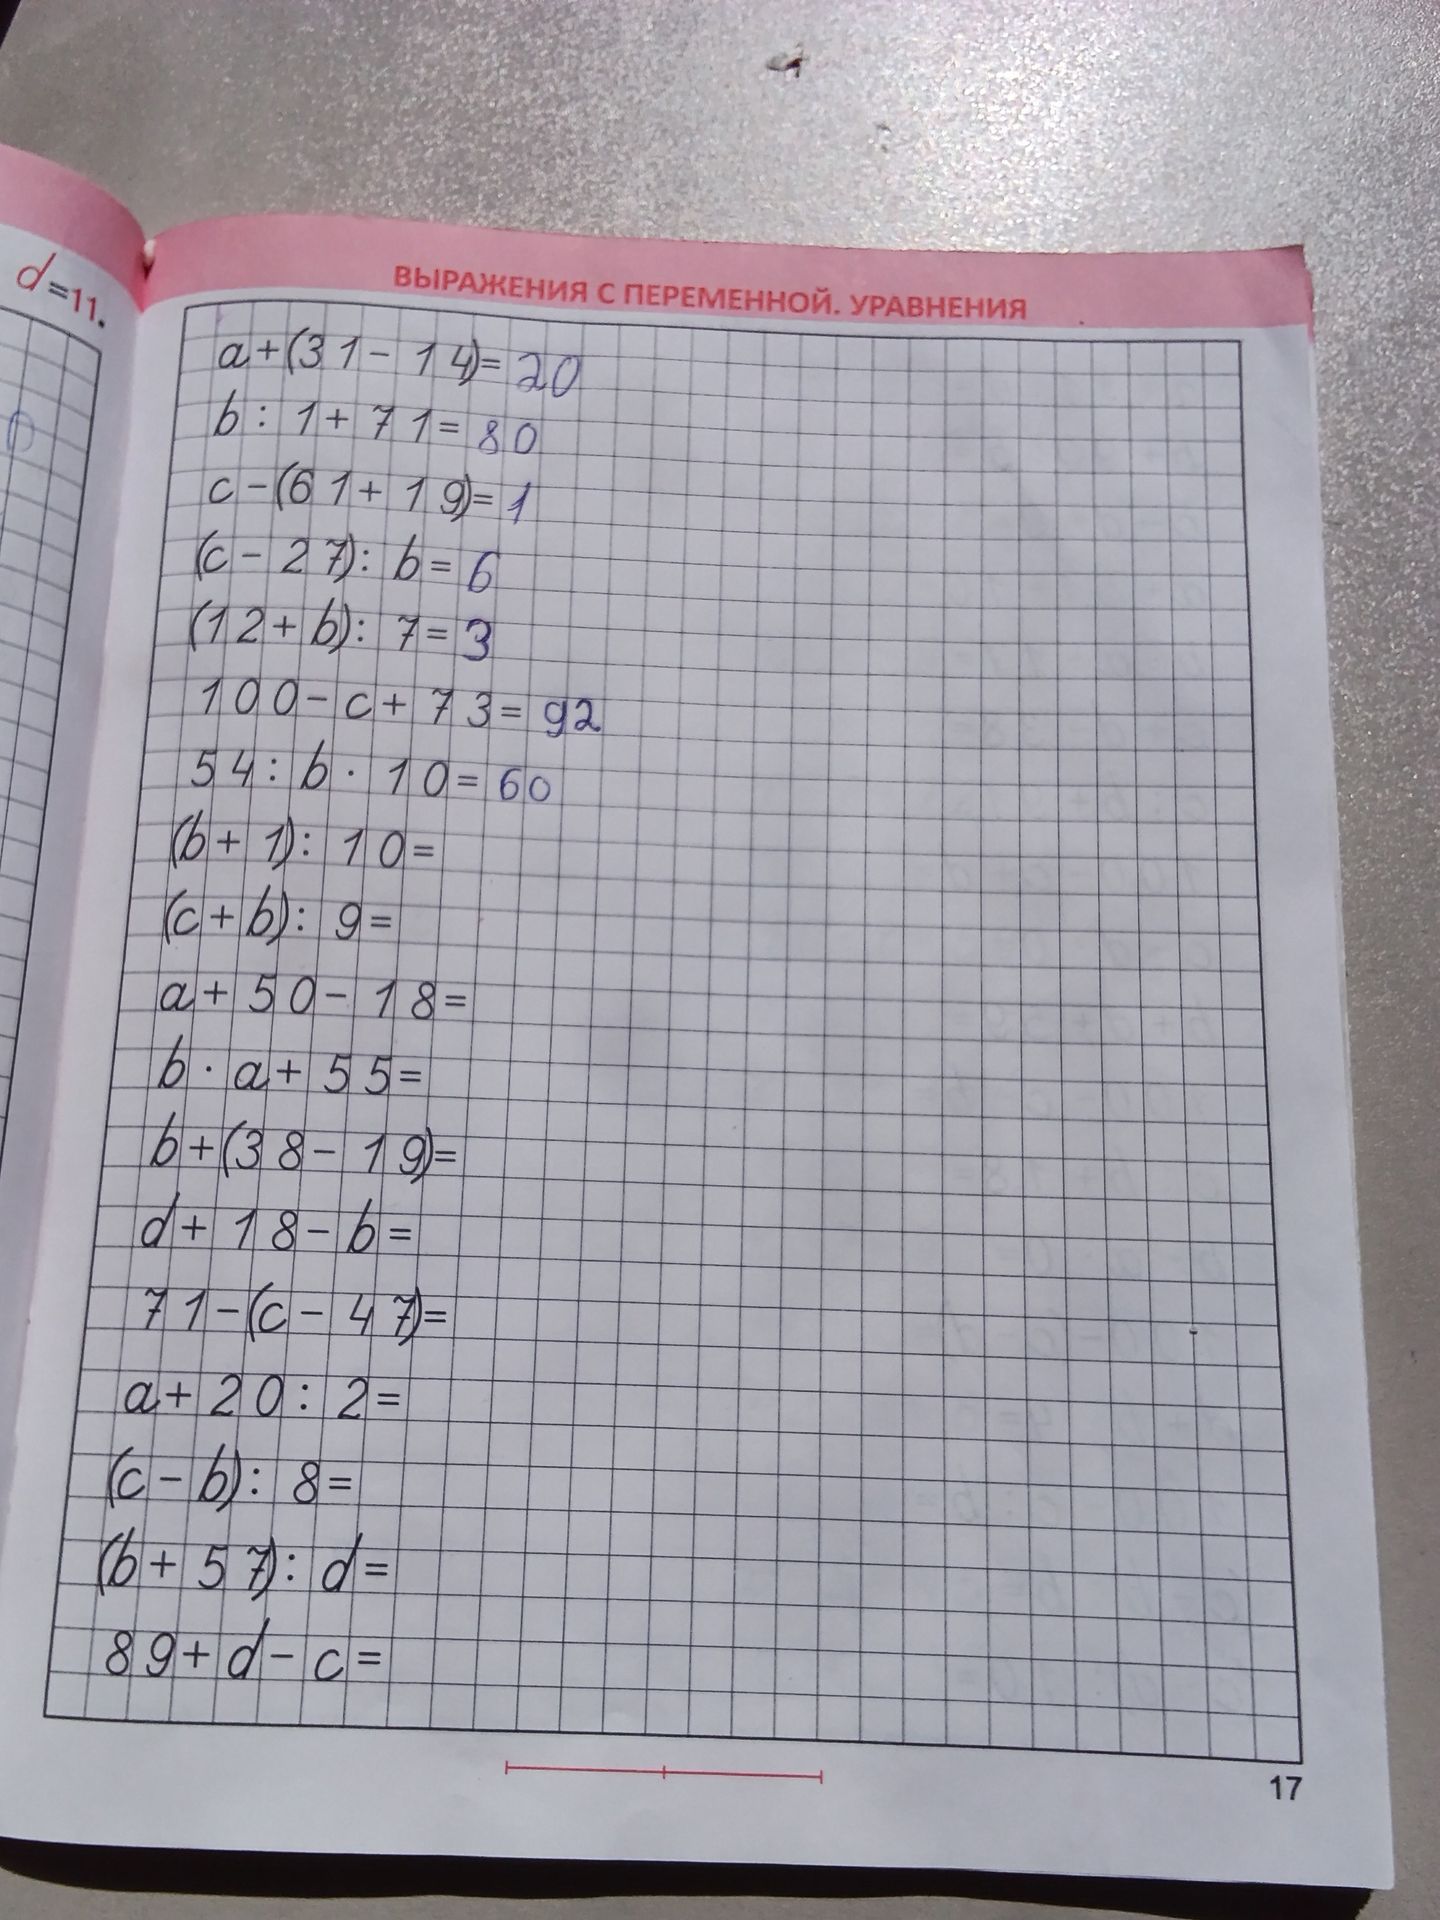 d=11.
ВЫРАЖЕНИЯ С ПЕРЕМЕННОЙ. УРАВНЕНИЯ
a+(31-14)=20
b:1+71=80
c-(61+19)=1
(c-27):b=6
(12+b):7=3
100-c+73=92
54:b·10=60
(b+1):10=
(c+b):9=
a+50-18=
b·a+55=
b+(38-19)=
d+18-b=
71-(c-47)=
a+20:2=
(c-b):8=
(b+57):d=
89+d-c=
17